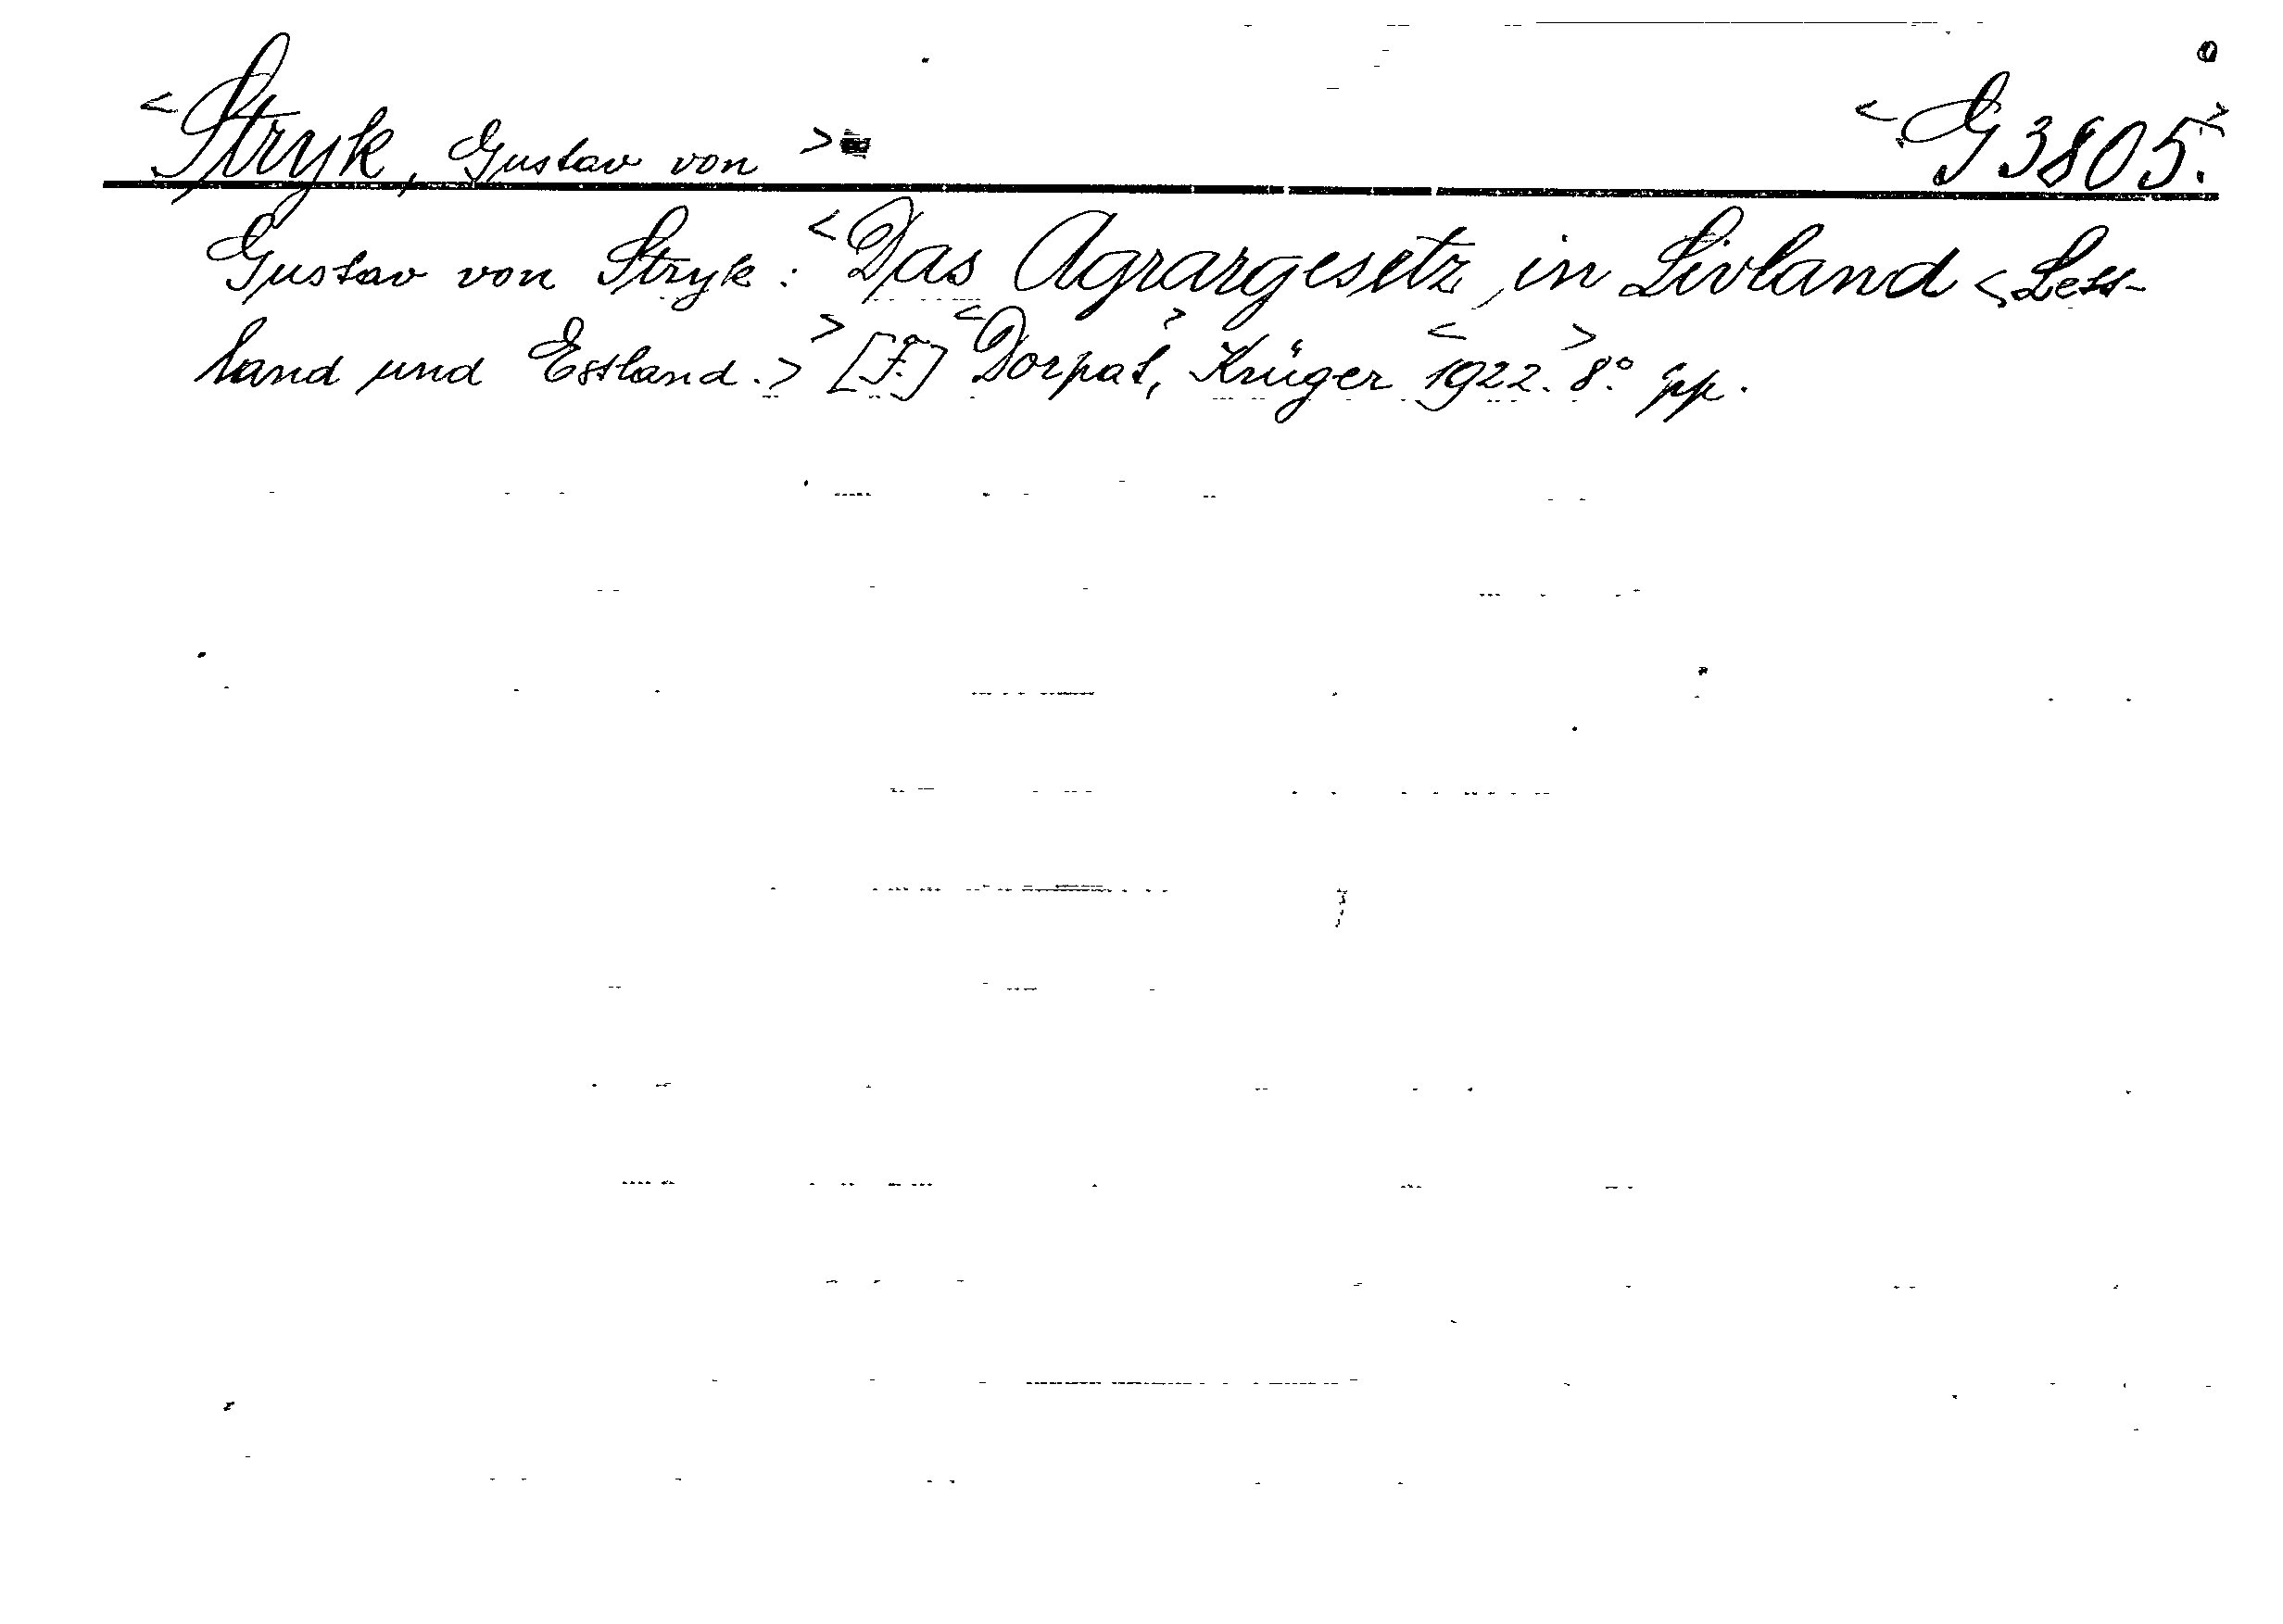 <Stryk, Gustav von> <G 3805.>
Gustav von Stryk: <Das Agrargesetz, in Livland <Lett-
land und Estland.>> [F.] <Dorpat,> Krüger <1922.> 8.° pp.